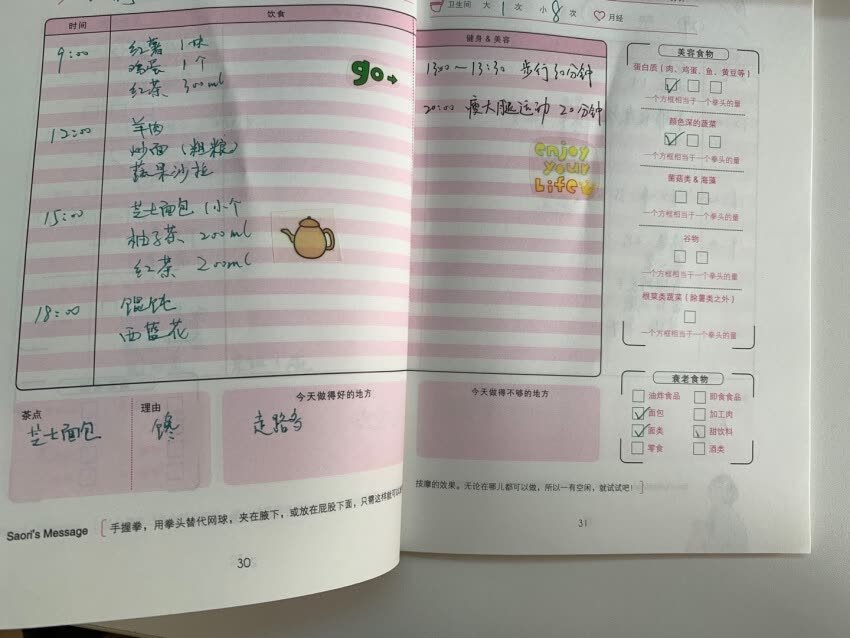 卫生间 大 1 次 小 8 次 月经
时间 饮食
9:00 红薯 1块
鸡蛋 1个
红茶 300ml
go
12:00 羊肉
炒面(粗粮)
蔬果沙拉
15:00 芝士面包 1小个
柚子茶 200ml
红茶 200ml
18:00 馄饨
西蓝花
茶点
芝士面包
理由
馋
今天做得好的地方
走路多
Saori's Message
手握拳,用拳头替代网球,夹在腋下,或放在屁股下面,只需这样就可以
30
健身 & 美容
13:00~13:30 步行30分钟
20:00 瘦大腿运动 20分钟
enjoy
your
Life
今天做得不够的地方
按摩的效果。无论在哪儿都可以做,所以一有空闲,就试试吧!
31
美容食物
蛋白质(肉、鸡蛋、鱼、黄豆等)
一个方框相当于一个拳头的量
颜色深的蔬菜
一个方框相当于一个拳头的量
菌菇类 & 海藻
一个方框相当于一个拳头的量
谷物
一个方框相当于一个拳头的量
根菜类蔬菜(除薯类之外)
一个方框相当于一个拳头的量
衰老食物
油炸食品 即食食品
面包 加工肉
面类 甜饮料
零食 酒类